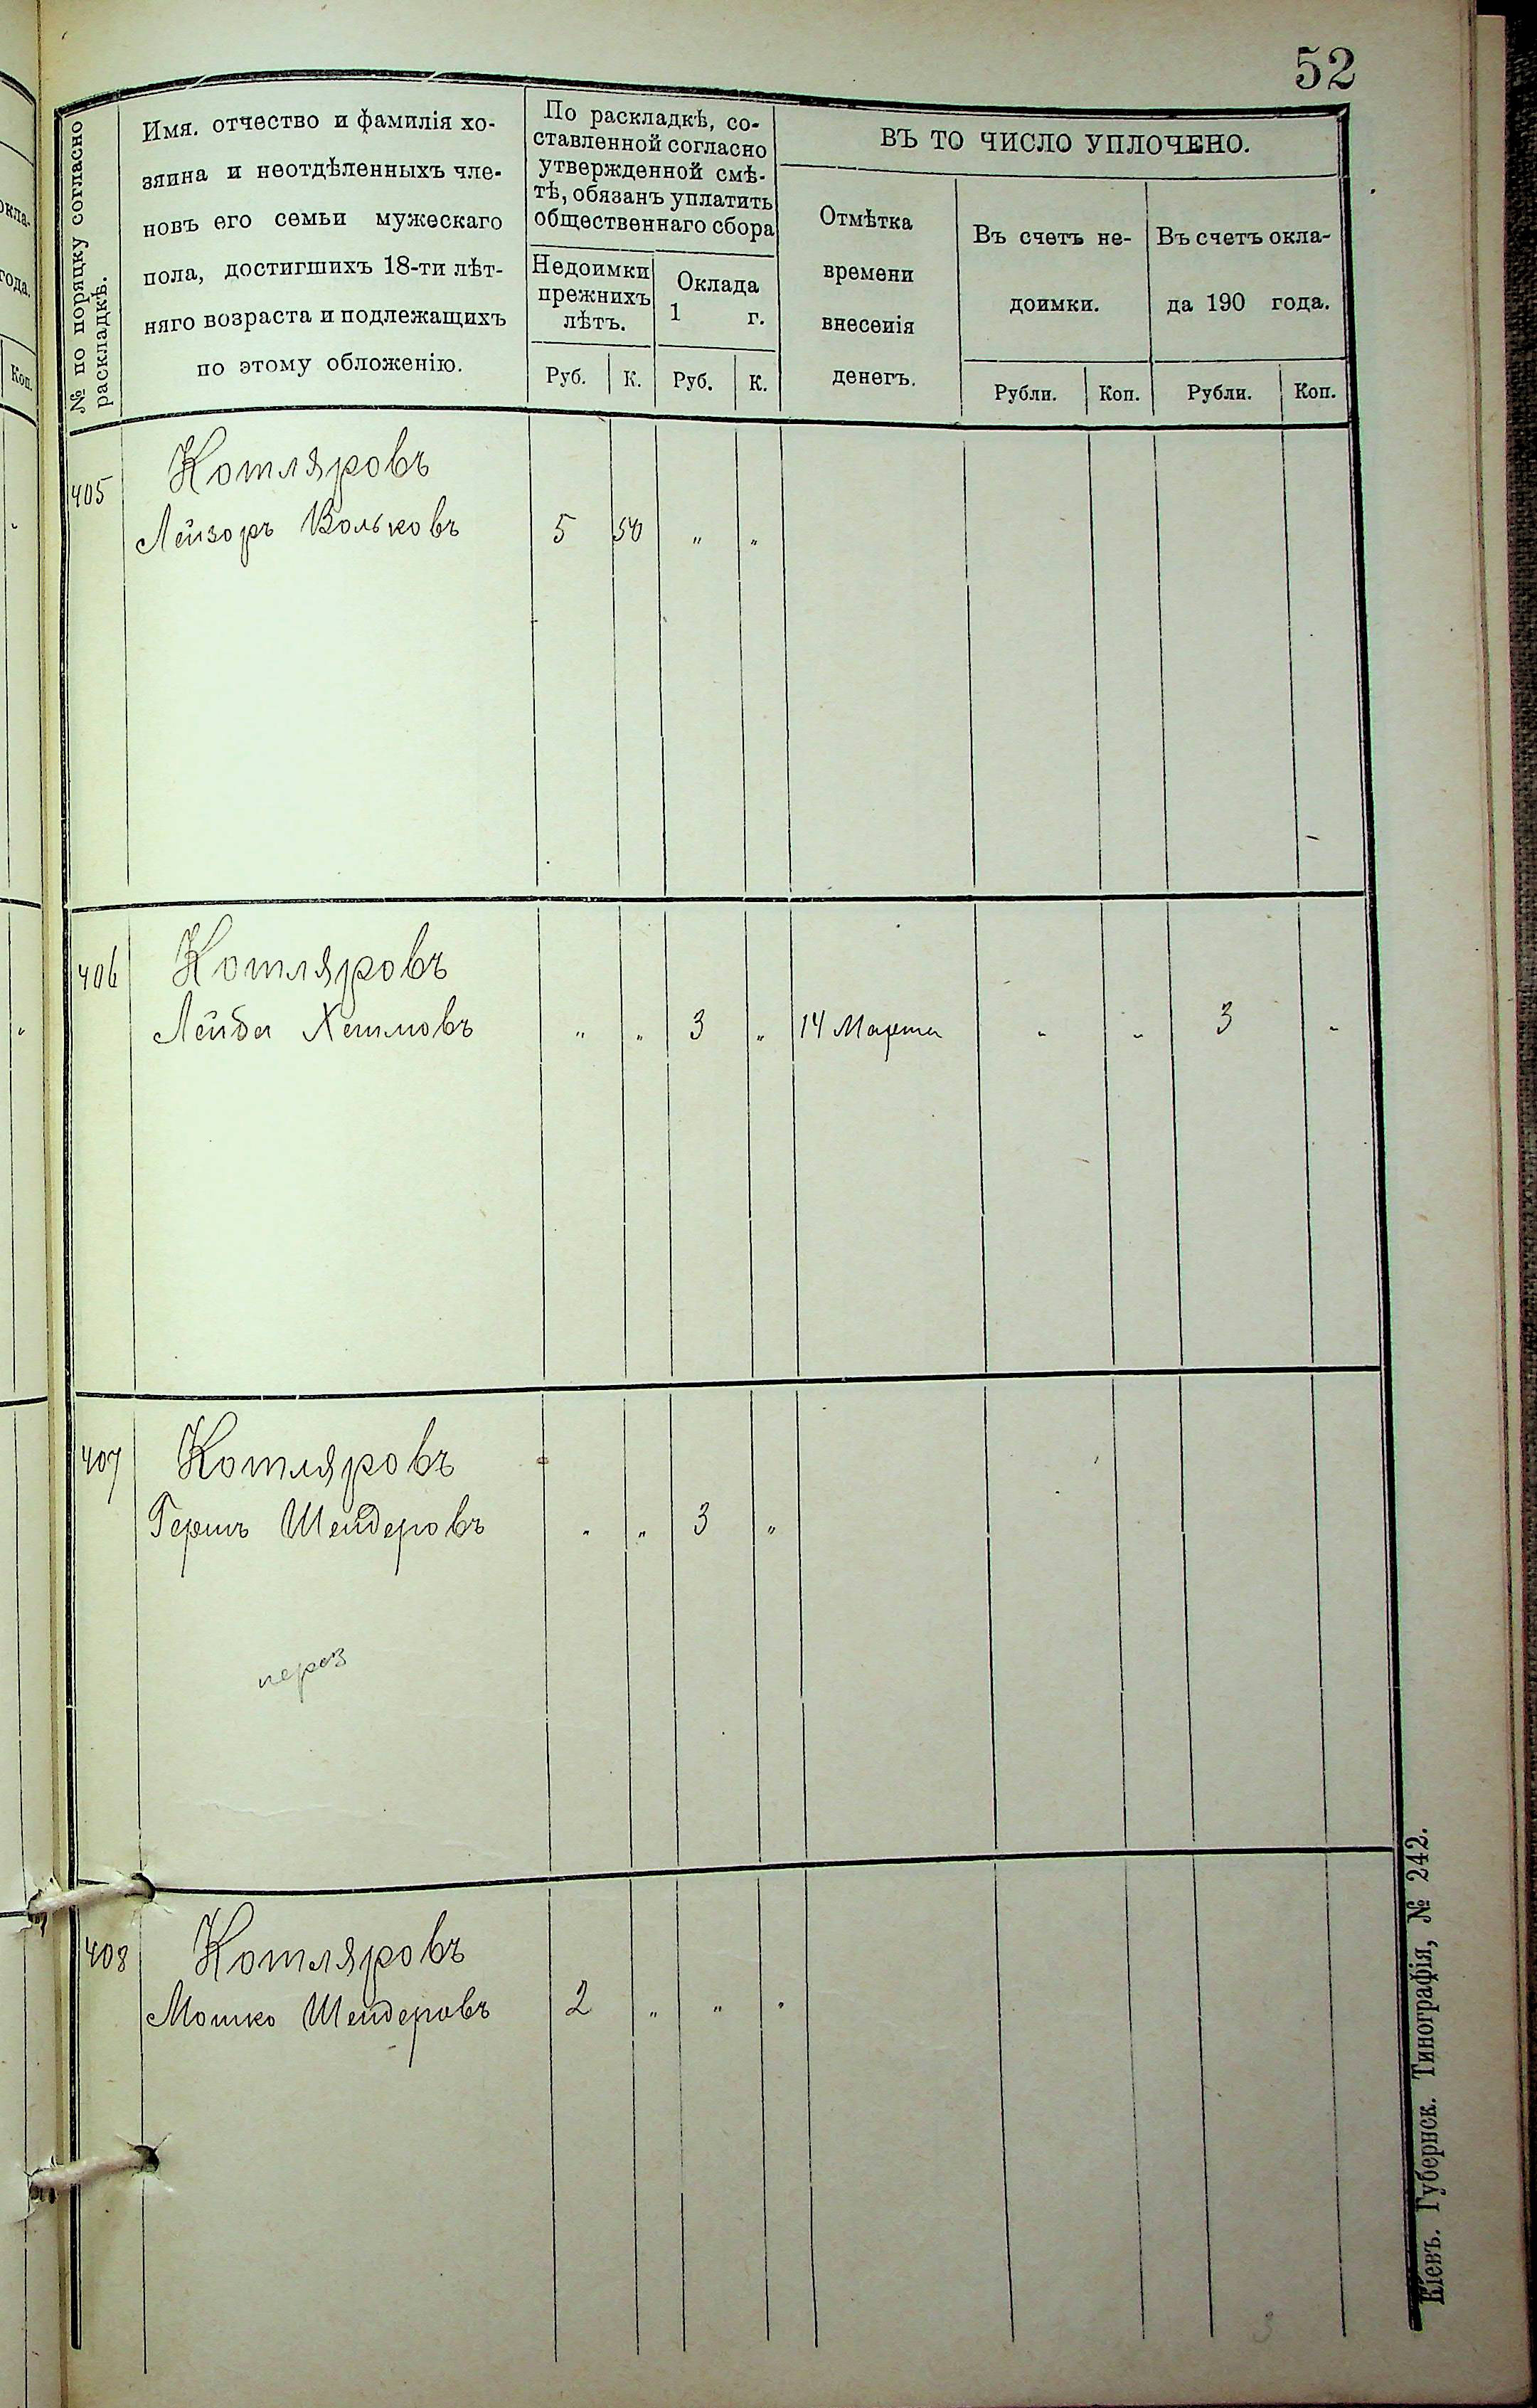 52
№ по поряцку согласно
раскладкѣ.
Имя. отчество и фамилія хо-
зяина и неотдѣленныхъ чле-
новъ его семьи мужескаго
пола, достигшихъ 18-ти лѣт-
няго возраста и подлежащихъ
по этому обложенію.
По раскладкѣ, со-
ставленной согласно
утвержденной смѣ-
тѣ, обязанъ уплатить
общественнаго сбора
Недоимки
прежнихъ
лѣтъ.
Оклада
1 г.
Руб. К. Руб. К.
ВЪ ТО ЧИСЛО УПЛОЧЕНО.
Отмѣтка
времени
внесенія
денегъ.
Въ счетъ не-
доимки.
Въ счетъ окла-
да 190 года.
Рубли. Коп. Рубли. Коп.
405 Котляровъ
Лейзоръ Вольковъ 5 50 " "
406 Котляровъ
Лейба Хаимовъ " " 3 " 14 Марта " " 3 "
407 Котляровъ
Гершъ Шендеровъ " " 3 "
408 Котляровъ
Мошко Шендеровъ 2 " " "
3
Кіевъ. Губернск. Типографія, № 242.
Коп.